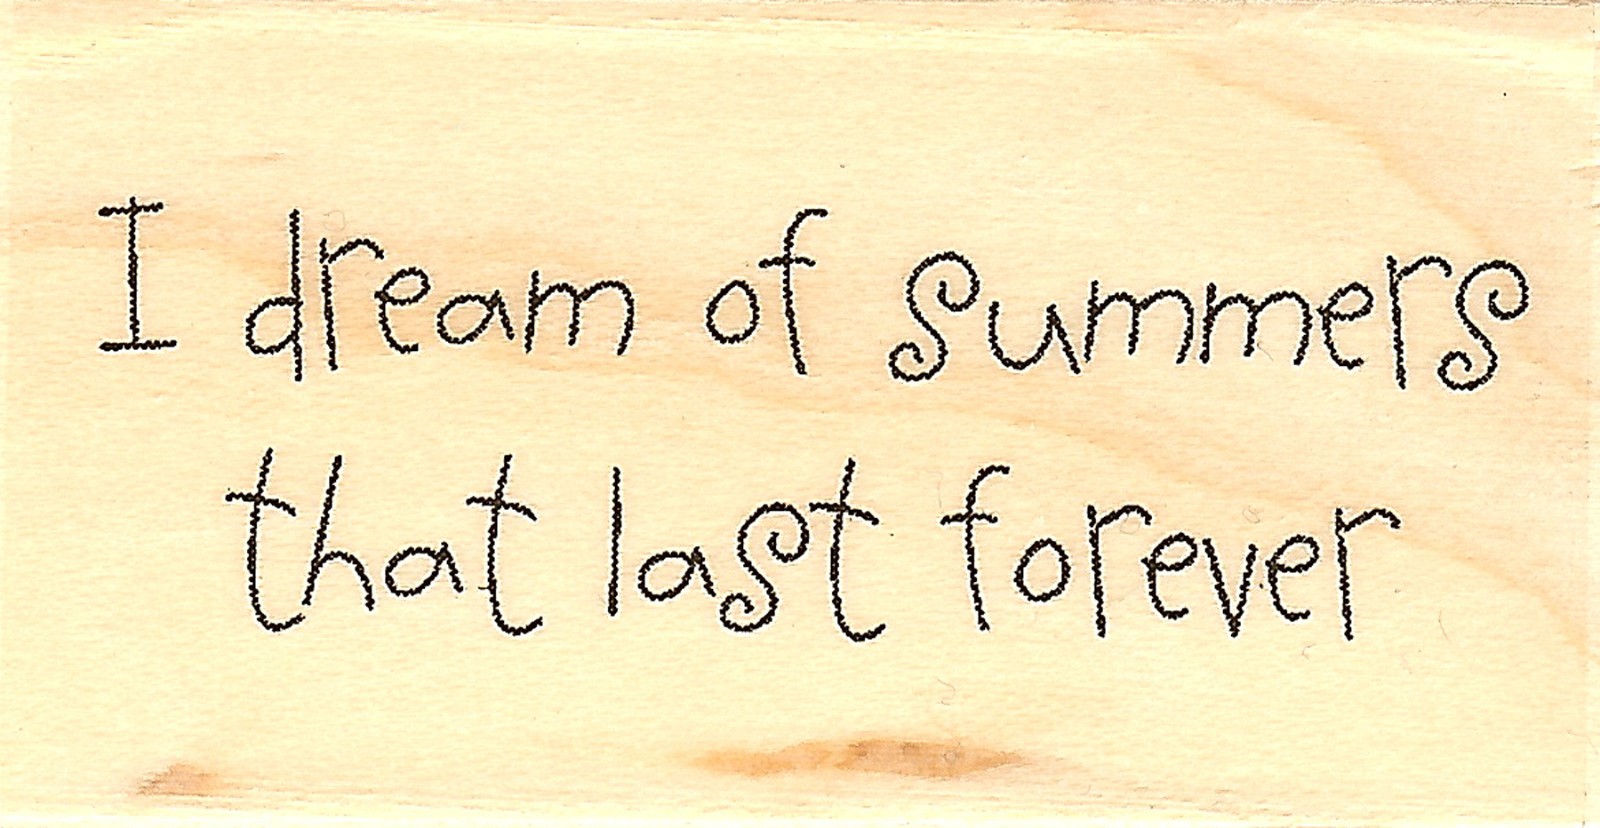 I dream of summers
that last forever